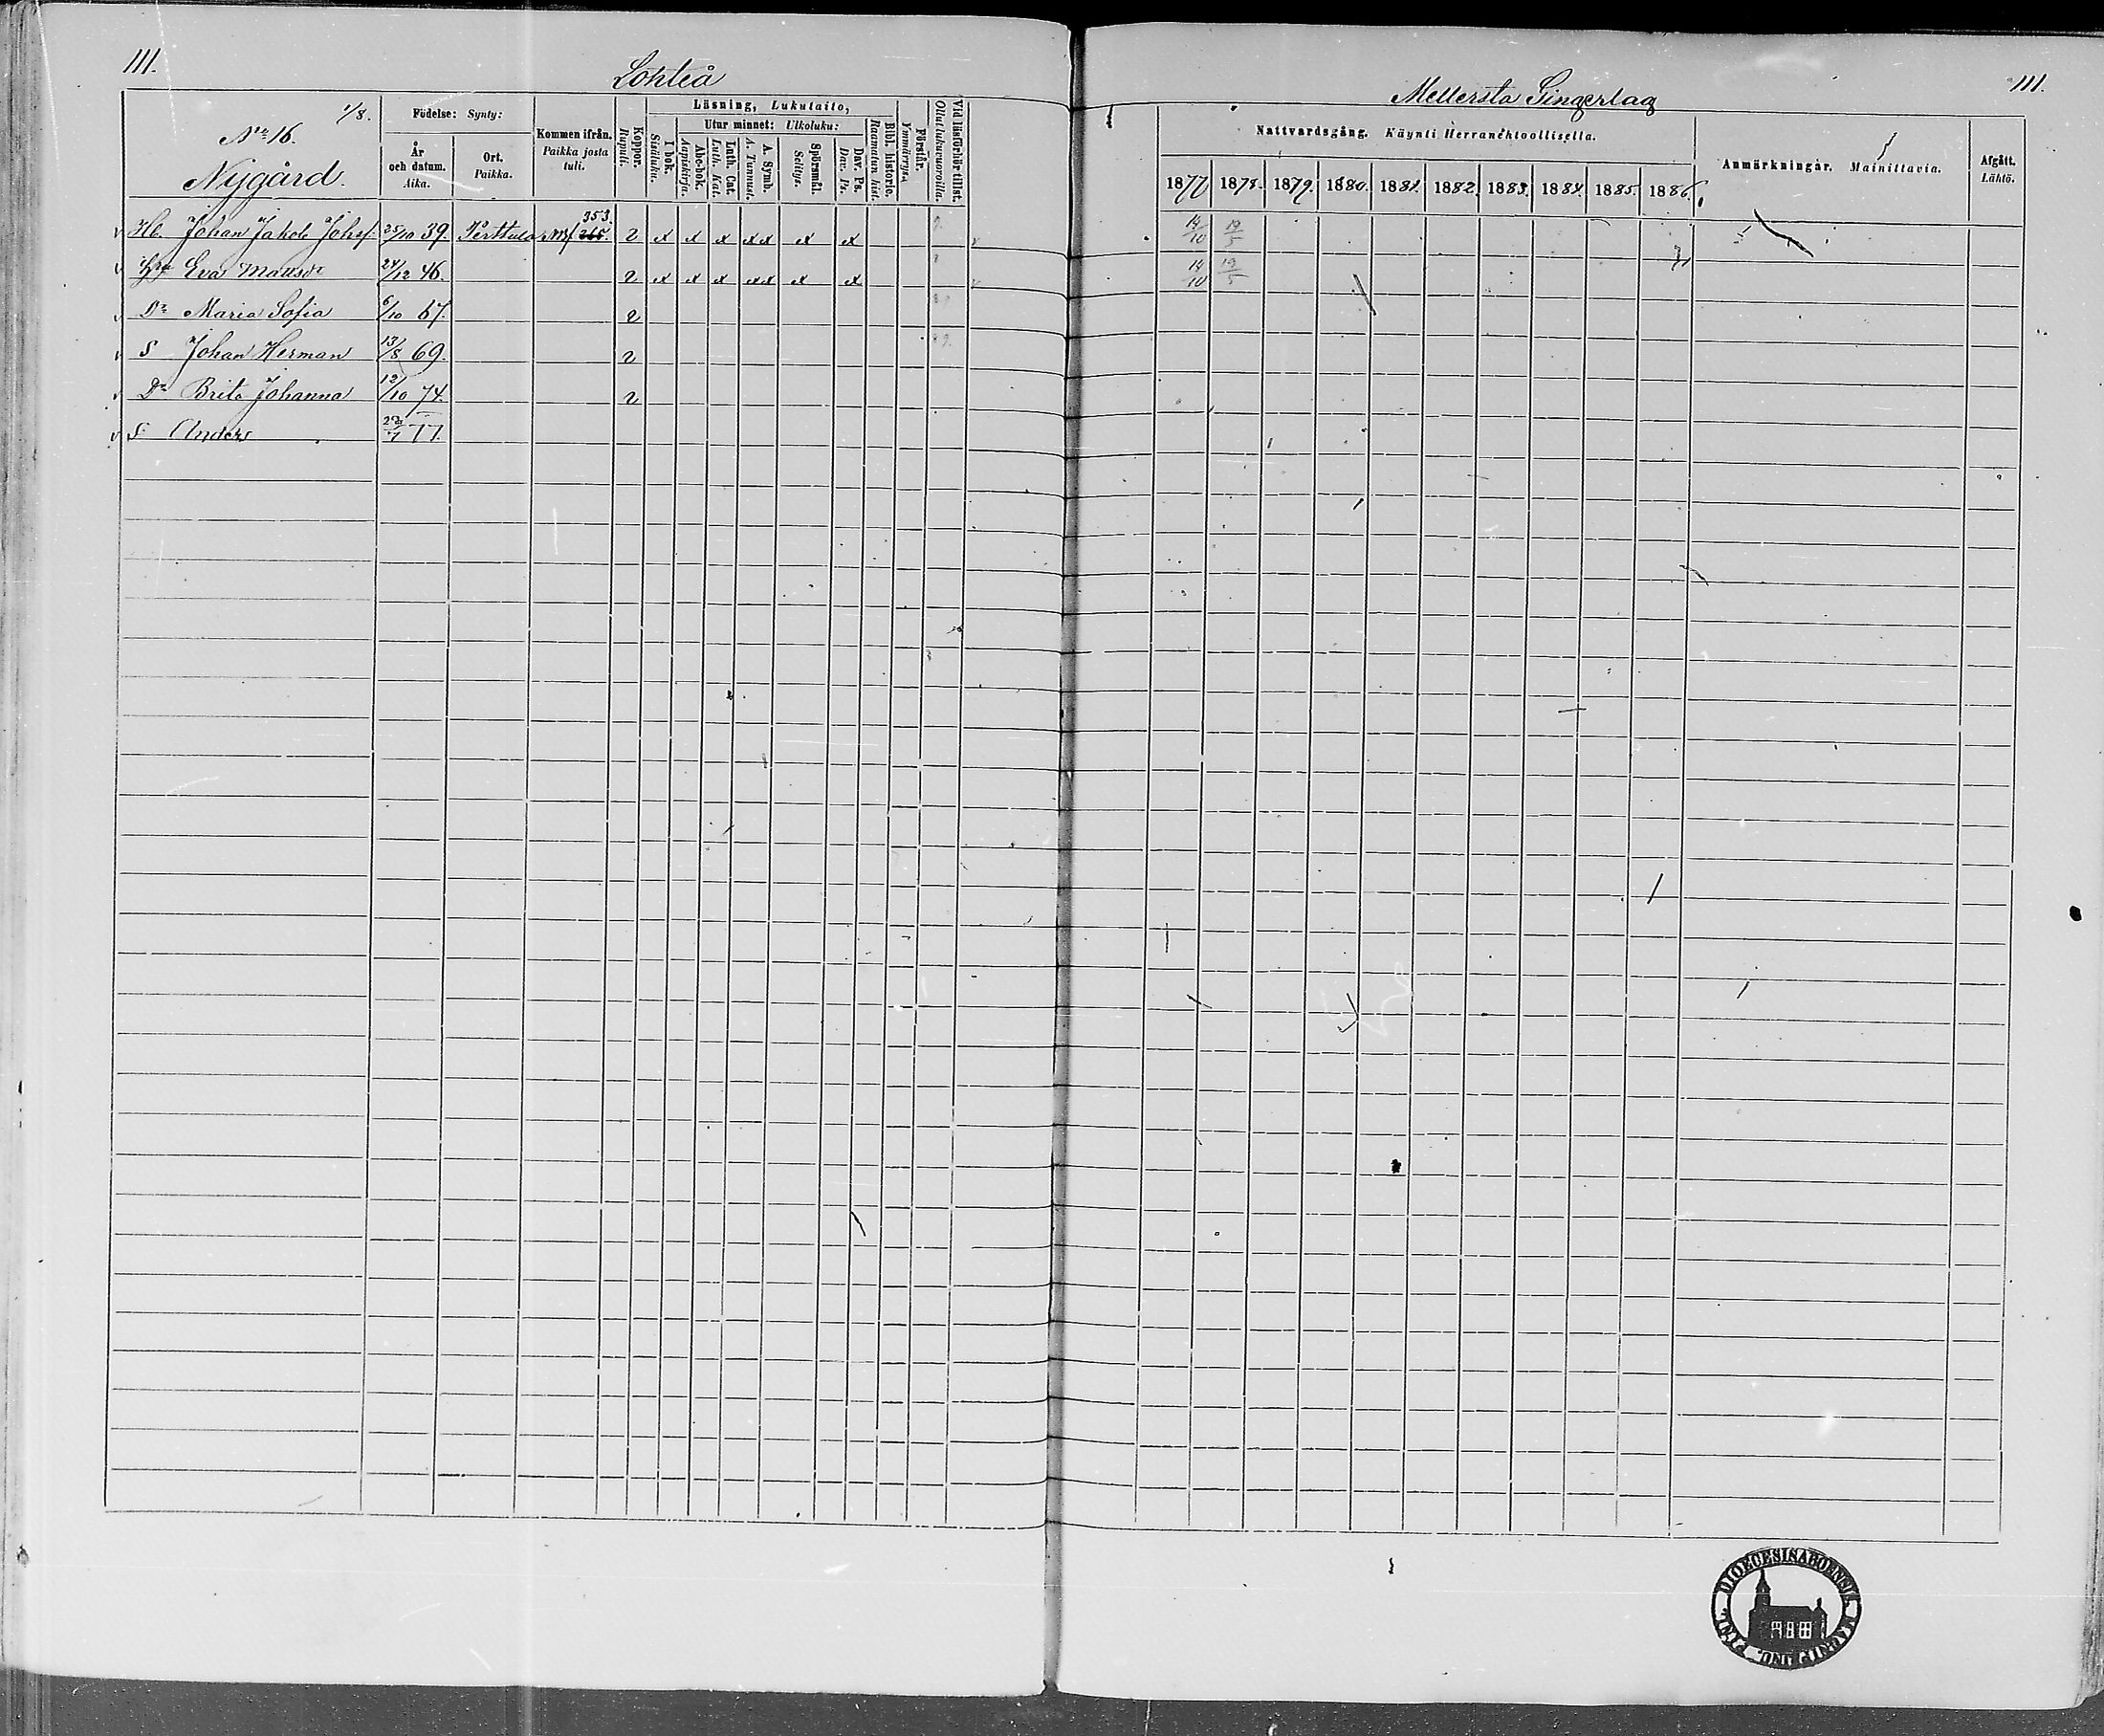 111.
Lohteå
1/8.
No 16.
Nygård.
Födelse: Synty:
År och datum. Aika.
Ort. Paikka.
Kommen ifrån. Paikka josta tuli.
Koppor. Rupuli.
Läsning, Lukutaito,
I bok. Sisäluku.
Utur minnet: Ulkoluku:
Abc-bok. Aapiskirja.
Luth. Cat. Luth. Kat.
A. Symb. A. Tunnust.
Spörsmål. Selitys.
Dav. Ps. Dav. Ps.
Bibl. historie. Raamatun hist.
Förstår. Ymmärrys.
Vid läsförhör tillst. Ollut lukuvuoroilla.
Hb. Johan Jakob Johsf 25/10 39. Perttula 353. 265. 2 x x x xx x x
Hu Eva Matsdr 24/12 46. 2 x x x xx x x
Dr Maria Sofia 6/10 67. 2
S Johan Herman 13/8 69. 2
Dr Brita Johanna 12/10 74. 2
S Anders 77.
Mellersta Gingerlag
111.
Nattvardsgång. Käynti Herranehtoollisella.
1877 1878. 1879. 1880. 1881. 1882. 1883. 1884. 1885. 1886.
Anmärkningar. Mainittavia.
Afgått. Lähtö.
14/10 19/5
14/10 19/5